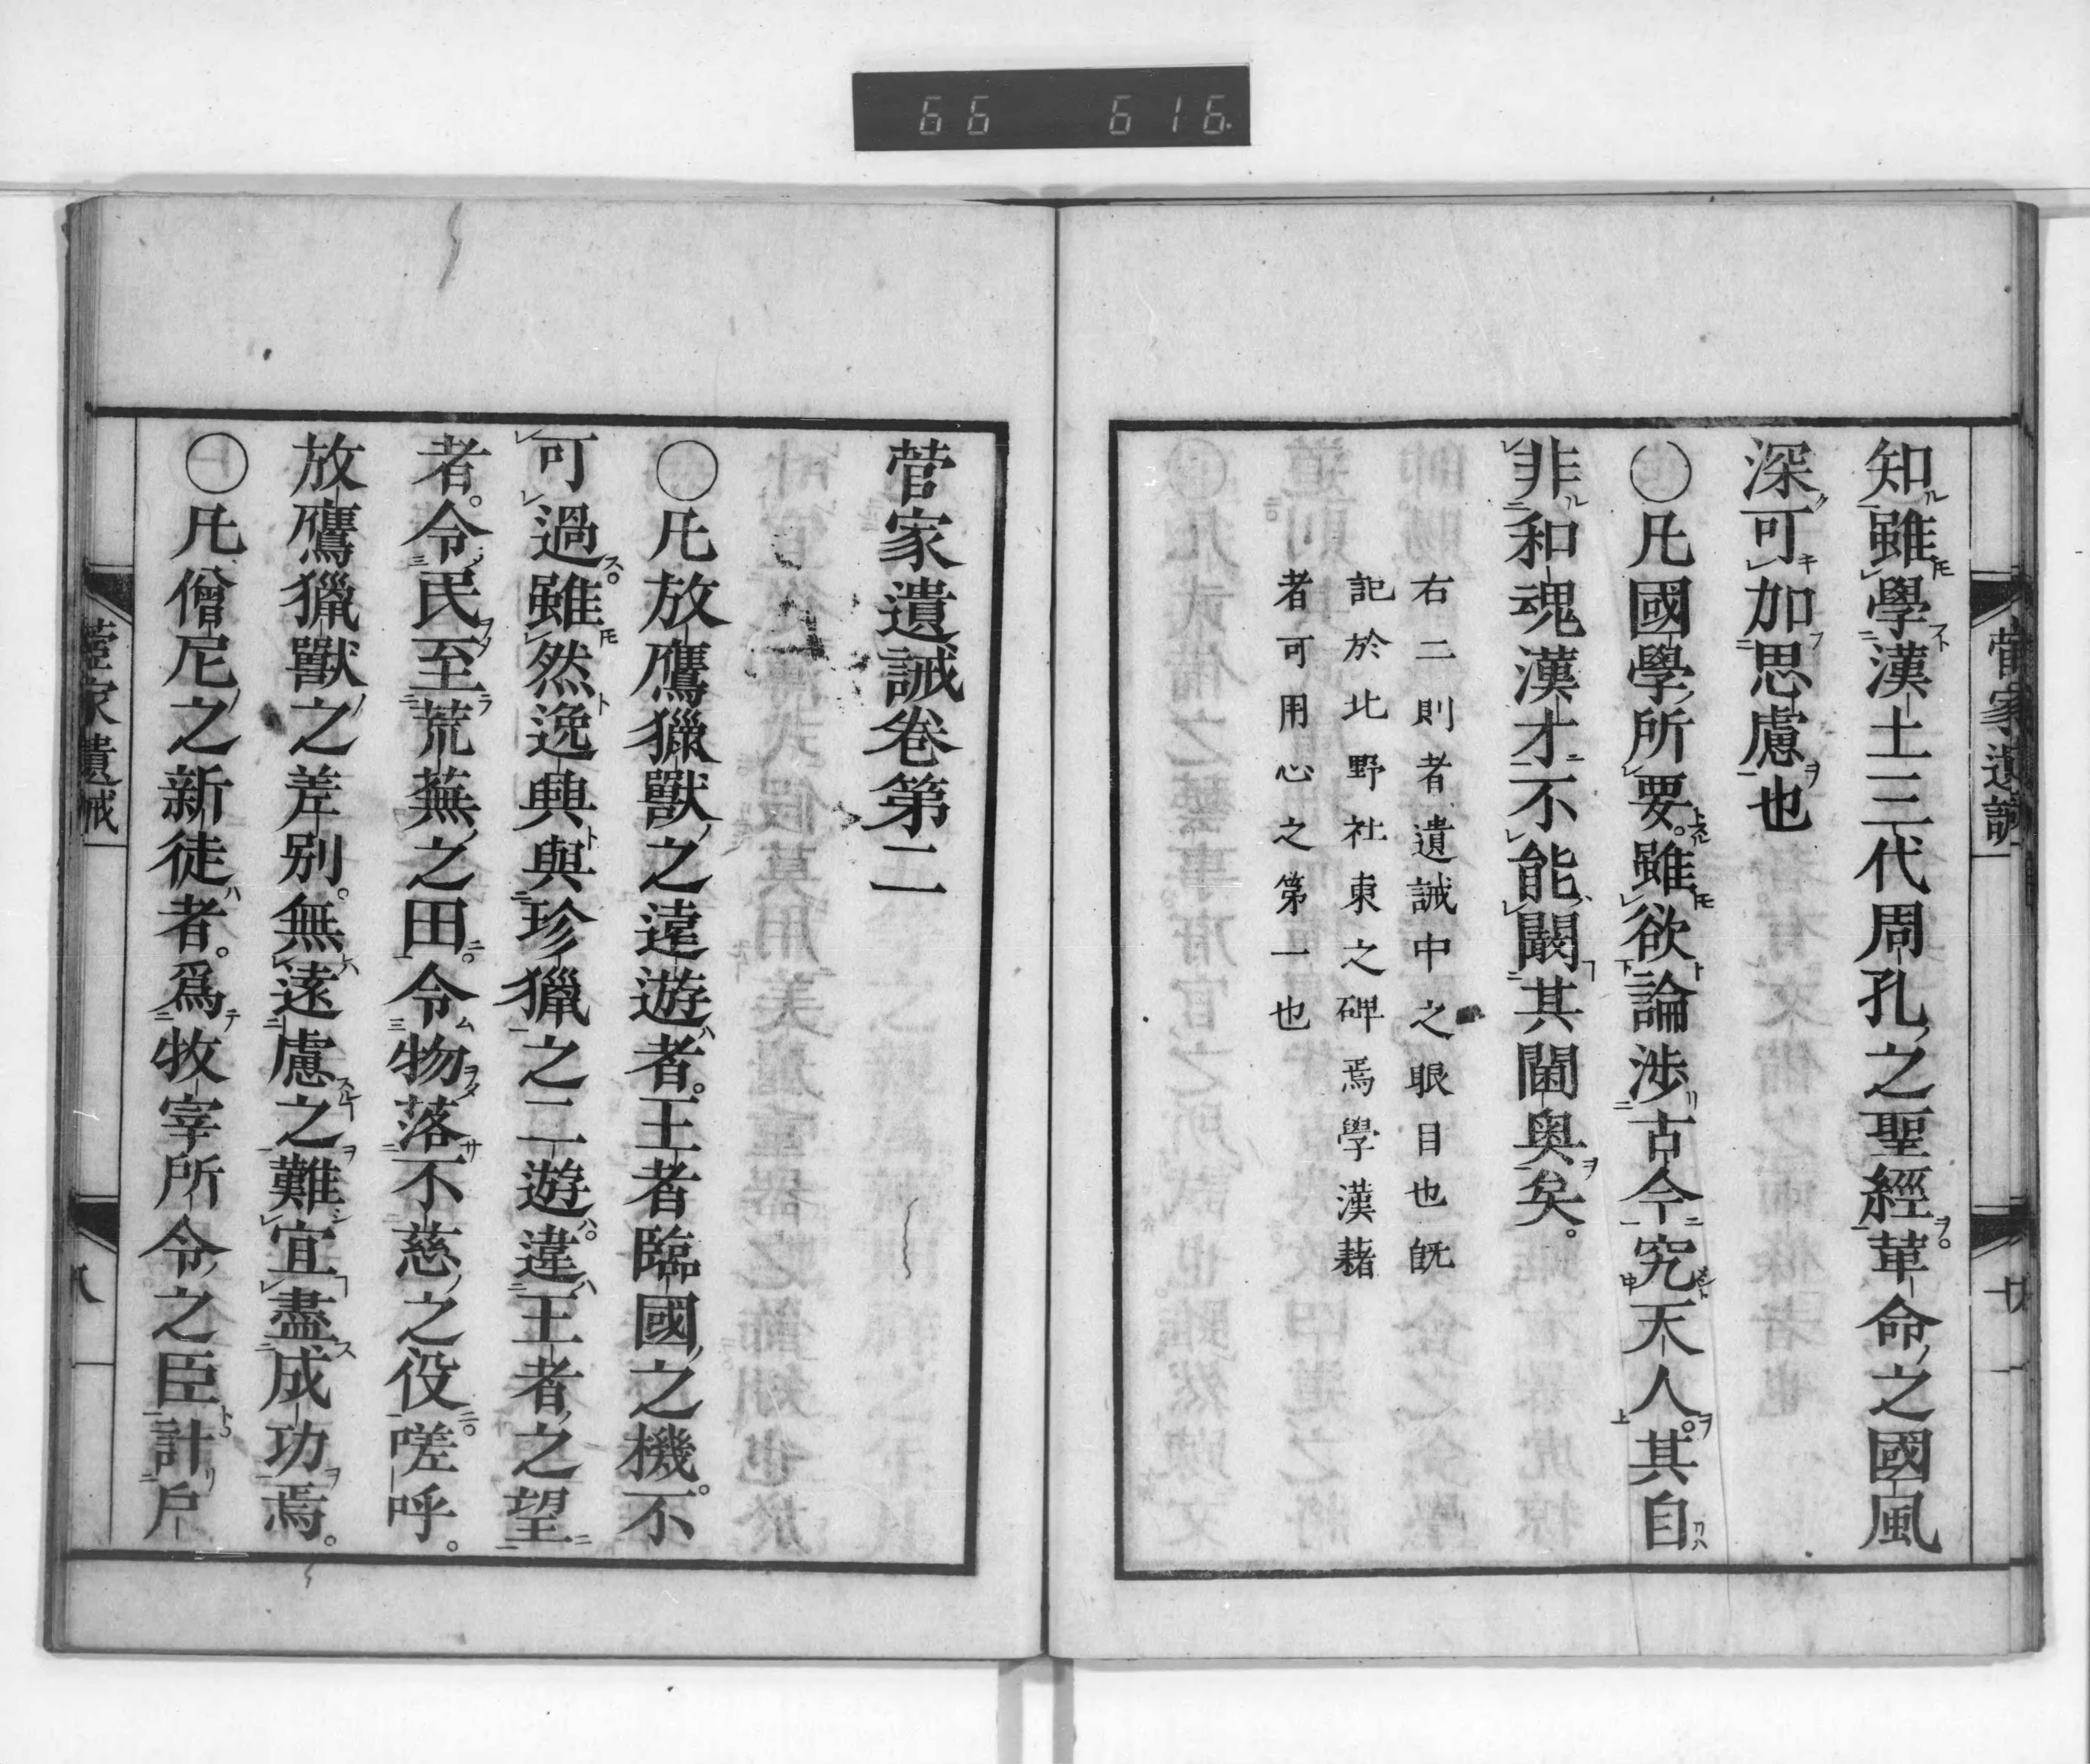 66 616.
菅家遺誡
知雖學漢土三代周孔之聖經革命之國風
深可加思慮也
〇凡國學所要雖欲論渉古今究天人其自
非和魂漢才不能闞其閫奥矣。
右二則者遺誡中之眼目也既
記於北野社東之碑焉學漢藉
者可用心之第一也
菅家遺誡卷第二
〇凡放鷹獵獸之遠遊者。王者臨國之機。不
可過雖然逸興與珍獵之二遊違王者之望
者。令民至荒蕪之田。令物落不慈之役嗟呼。
放鷹獵獸之差別。無遠慮之難宜盡成功焉。
〇凡僧尼之新徒者。爲牧宰所令之臣計戶
菅家遺誡
八